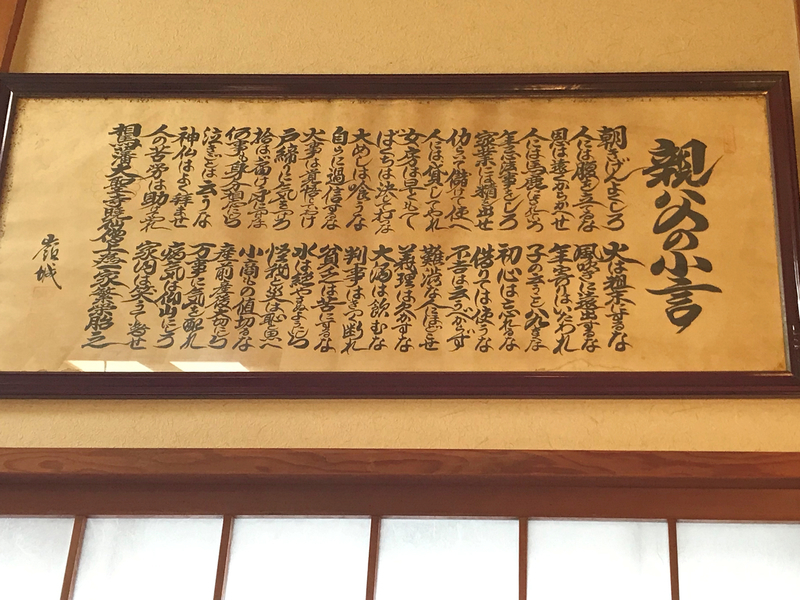 親父の小言
朝きげんよくしろ
火は粗末にするな
人には腹を立てるな
風吹きに遠出するな
恩は遠くからかへせ
年寄りはいたわれ
人には馬鹿にされろ
子の云うこと八九きくな
年忌法事をしろ
初心は忘れるな
家業には精を出せ
借りては使うな
仂いて儲けて使へ
不吉は云うべからず
人には貸してやれ
難渋な人にほどこせ
女房は早くもて
義理は欠かすな
ばくちは決して打つな
大酒は飲むな
大めしは喰うな
判事はきつく断れ
自らに過信するな
貧乏は苦にするな
火事は覚悟しておけ
水は絶やさぬようにしろ
戸締りに気をつけろ
怪我と災は恥と思へ
拾わば届け身につけるな
小商もの値切るな
何事も身分相応にしろ
産前産後大切にしろ
泣きごとは云うな
万事に気を配れ
神仏はよく拝ませ
病気は仰山にしろ
人の苦労は助けてやれ
家内は笑って暮せ
相馬藩大聖寺暁仙僧上
嶺城